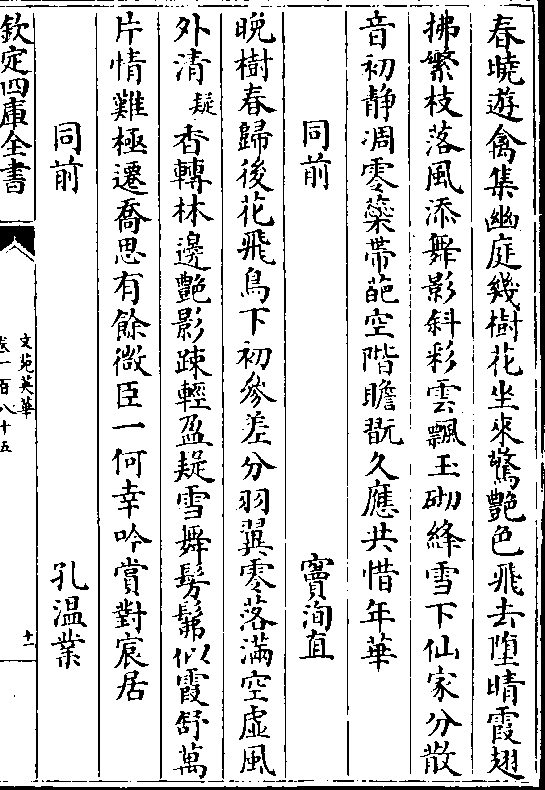 春曉遊禽集幽庭幾樹花坐來驚艷色飛去墮晴霞翅
拂繁枝落風添舞影斜彩雲飄玉砌絳雪下仙家分散
音初静凋零蘂帶葩空階瞻翫久應共惜年華
同前 竇洵直
晩樹春歸後花飛鳥下初參差分羽翼零落滿空虛風
外清疑香轉林邊艷影踈輕盈疑雪舞髣髴似霞舒萬
片情難極遷喬思有餘微臣一何幸吟賞對宸居
同前 孔温業
欽定四庫全書
文苑英華
卷一百八十五
十一